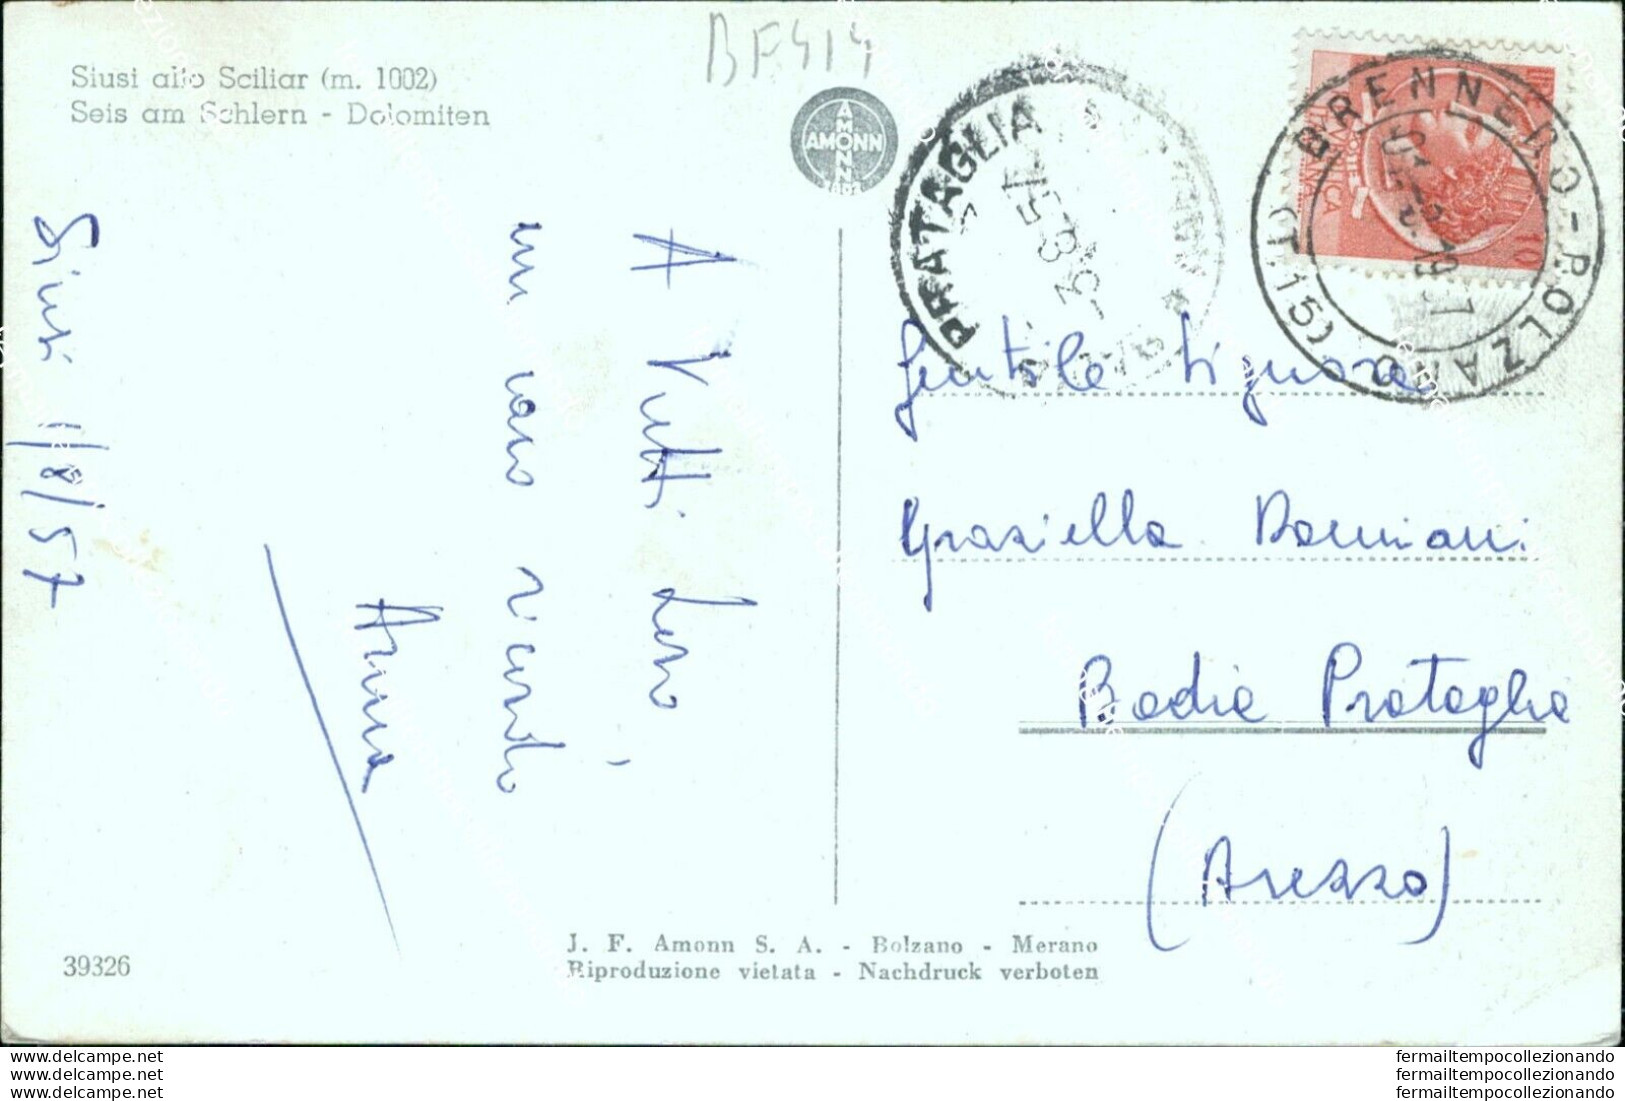 BF414
Siusi allo Sciliar (m. 1002)
Seis am Schlern - Dolomiten
AMONN
1802
PRATAGLIA
5-8-57
BRENNERO-BOLZANO
1957
10
Siusi 1/8/57
A Tutti Loro
un caro ricordo
Anna
Gentile Signora
Graziella Damiani
Badia Prataglia
(Arezzo)
39326
J. F. Amonn S. A. - Bolzano - Merano
Riproduzione vietata - Nachdruck verboten
www.delcampe.net
www.delcampe.net
www.delcampe.net
fermailtempocollezionando
fermailtempocollezionando
fermailtempocollezionando